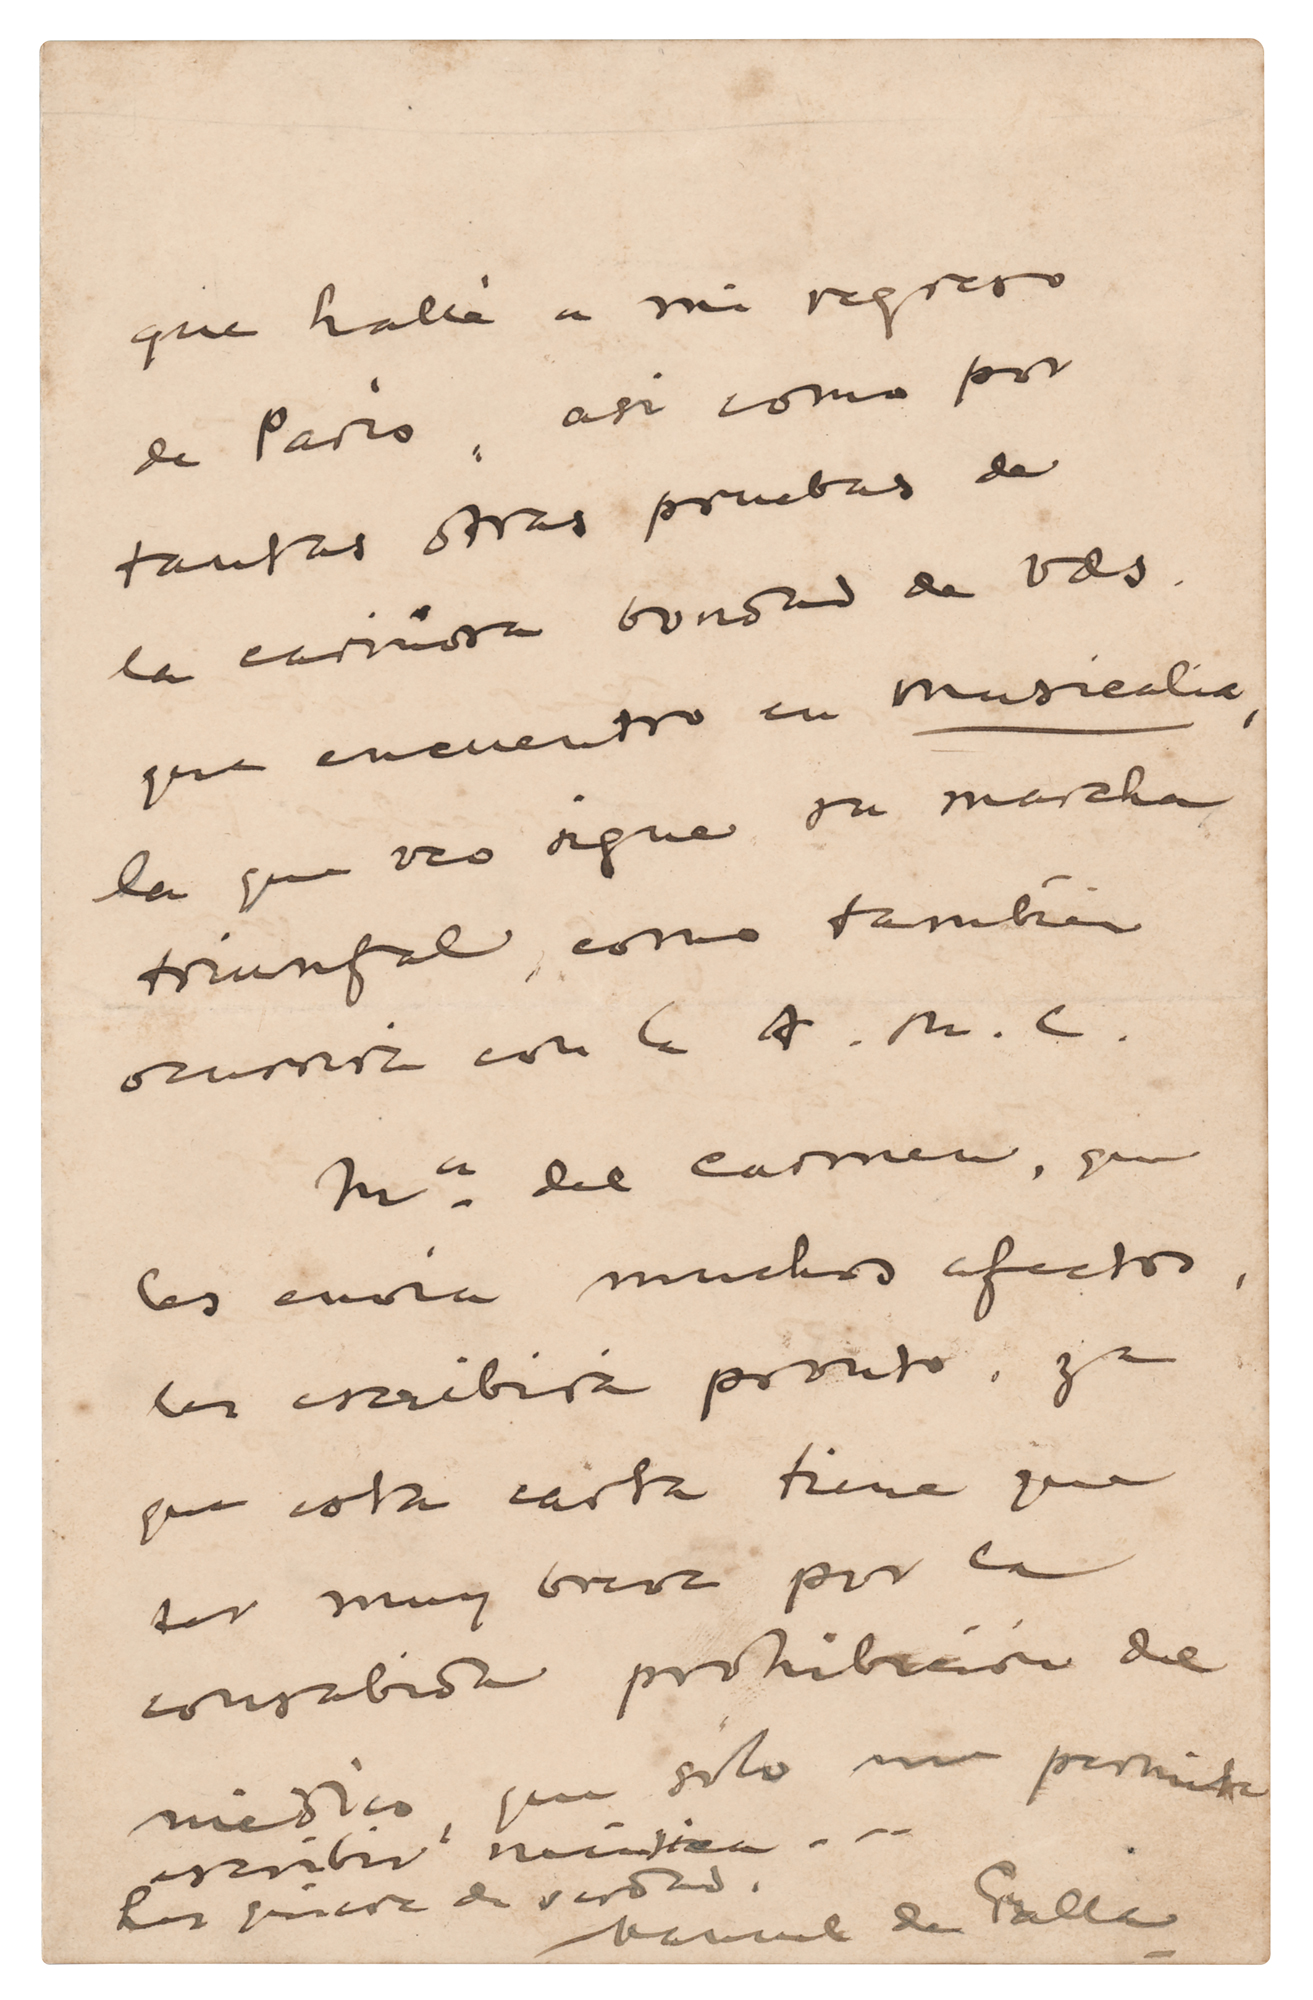 que hallé a mi regreso
de París, así como por
tantas otras pruebas de
la cariñosa bondad de Vds.
que encuentro en Musicalia,
la que veo sigue su marcha
triunfal, como también
ocurrirá con la A. M. C.
Mª del Carmen, que
les envía muchos afectos,
les escribirá pronto, ya
que esta carta tiene que
ser muy breve por la
consabida prohibición del
médico, que sólo me permite
escribir música...
Les quiere de verdad,
Manuel de Falla